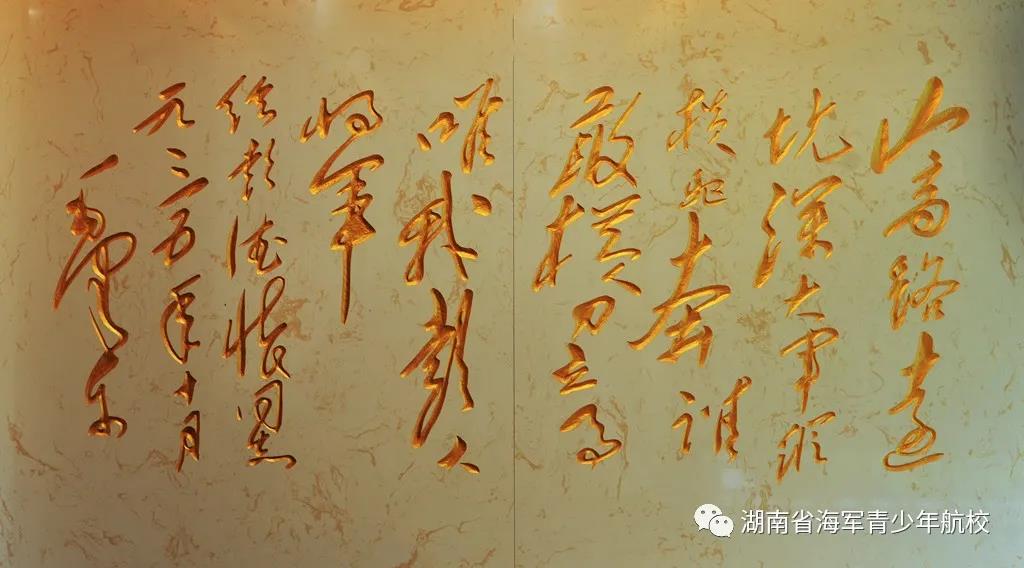 山高路远
坑深大军纵
横驰奔谁
敢横刀立马
唯我彭大
将军
给彭德怀同志
一九三五年十月
毛泽东
湖南省海军青少年航校